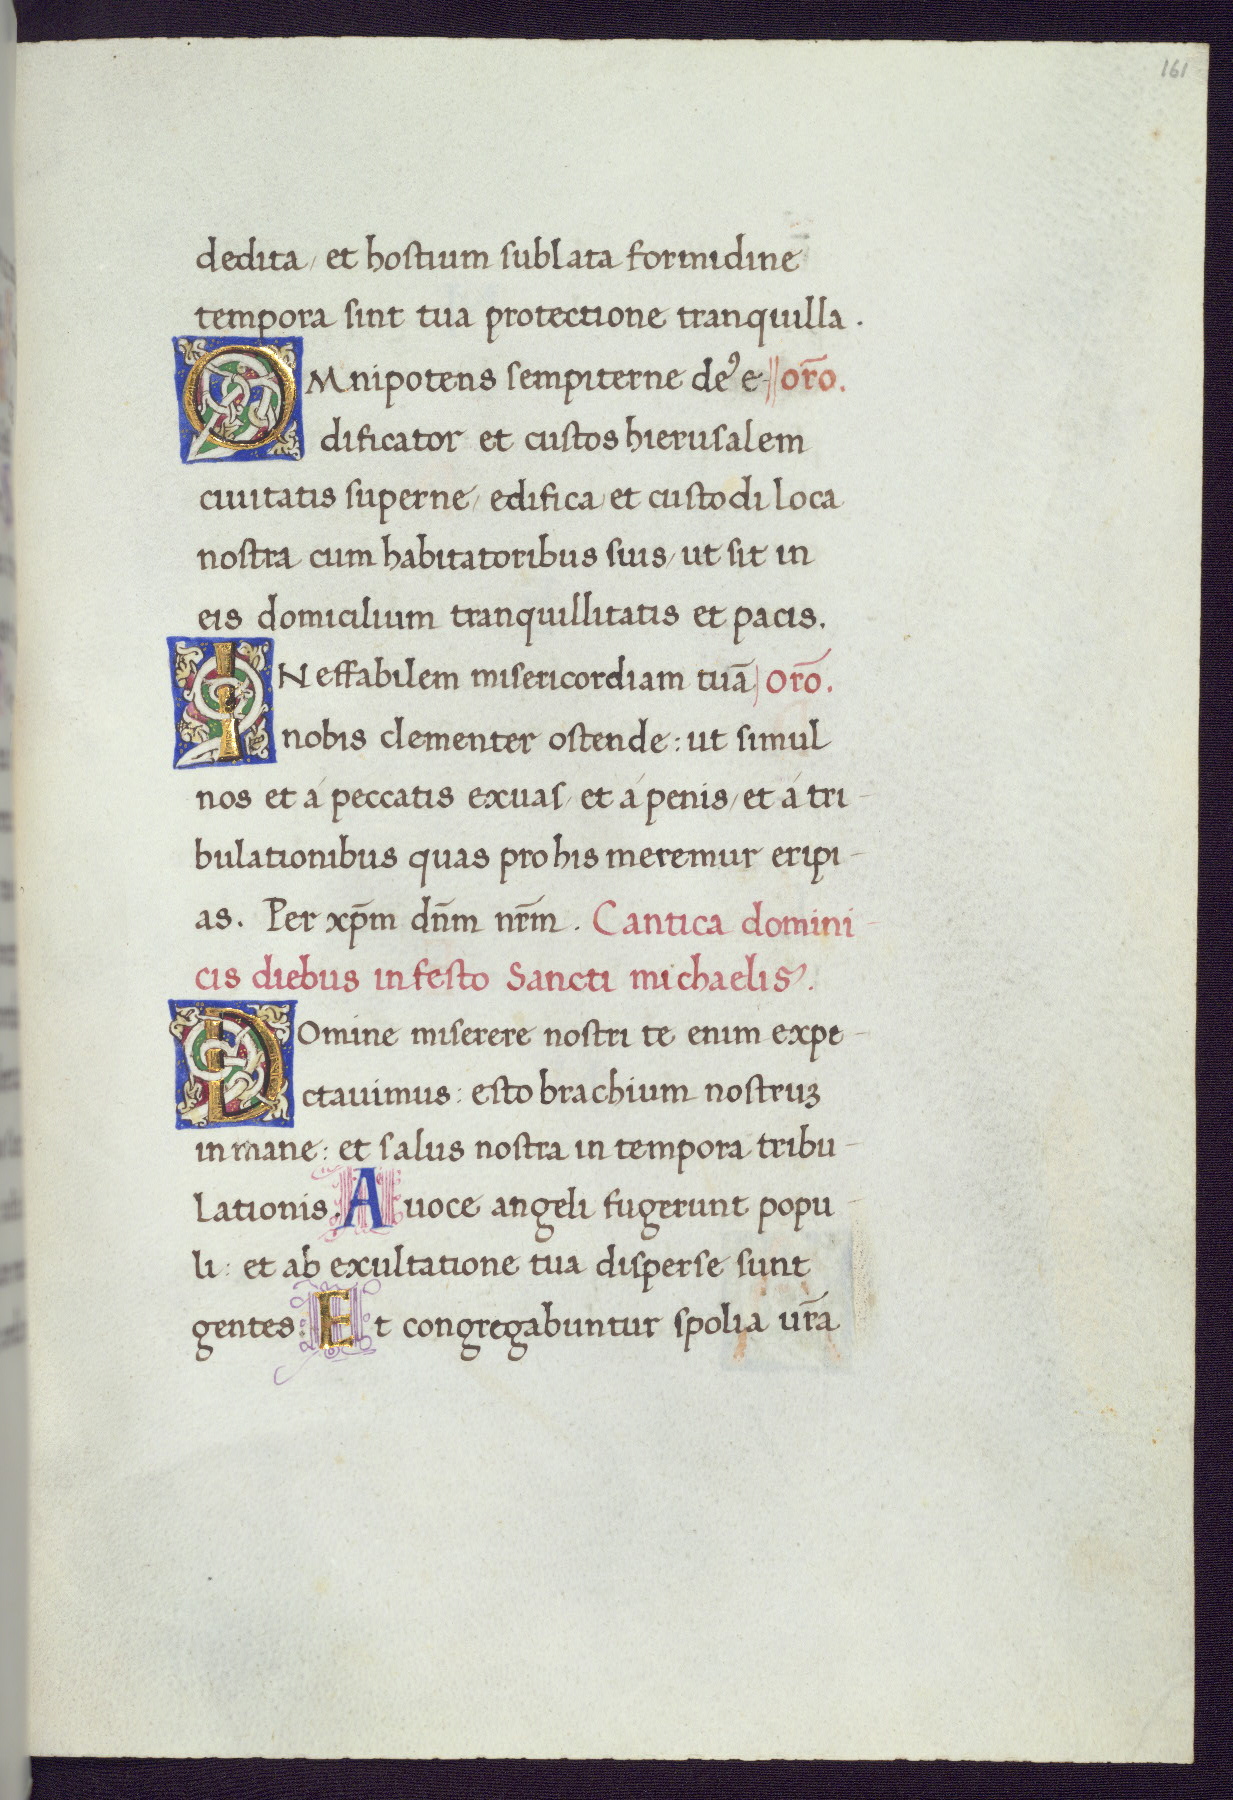 161
dedita, et hostium sublata formidine
tempora sint tua protectione tranquilla.
OMnipotens sempiterne deꝰ e- oro̅.
dificator et custos hierusalem
ciuitatis superne, edifica, et custodi loca
nostra cum habitatoribus suis, ut sit in
eis domicilium tranquillitatis et pacis.
INeffabilem misericordiam tua̅ oro̅.
nobis clementer ostende: ut simul
nos et á peccatis exuas, et á penis, et á tri-
bulationibus quas pro his meremur eripi-
as. Per xp̅m dn̅m nr̅m. Cantica domini-
cis diebus in festo Sancti michaelis.
DOmine miserere nostri te enim expe-
ctauimus: esto brachium nostruꝫ
in mane: et salus nostra in tempora tribu-
lationis. A uoce angeli fugerunt popu-
li: et ab exultatione tua disperse sunt
gentes: Et congregabuntur spolia ur̅a